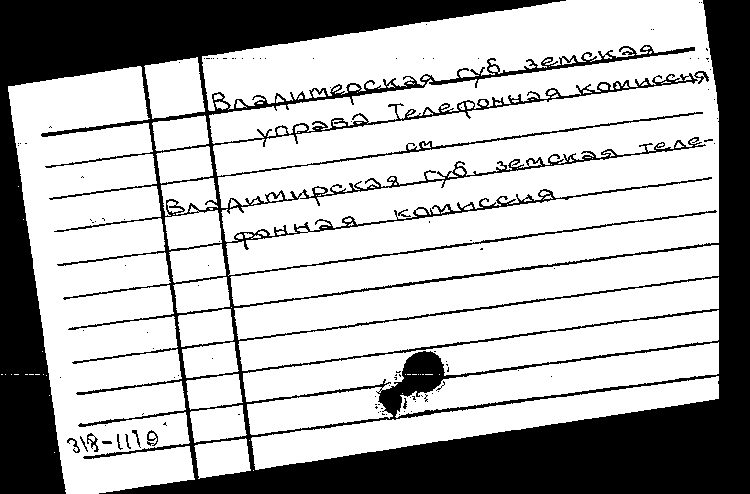 Владимерская губ. земская
управа Телефонная комиссия
см.
Владимирская губ. земская теле-
фонная комиссия.
318-1110